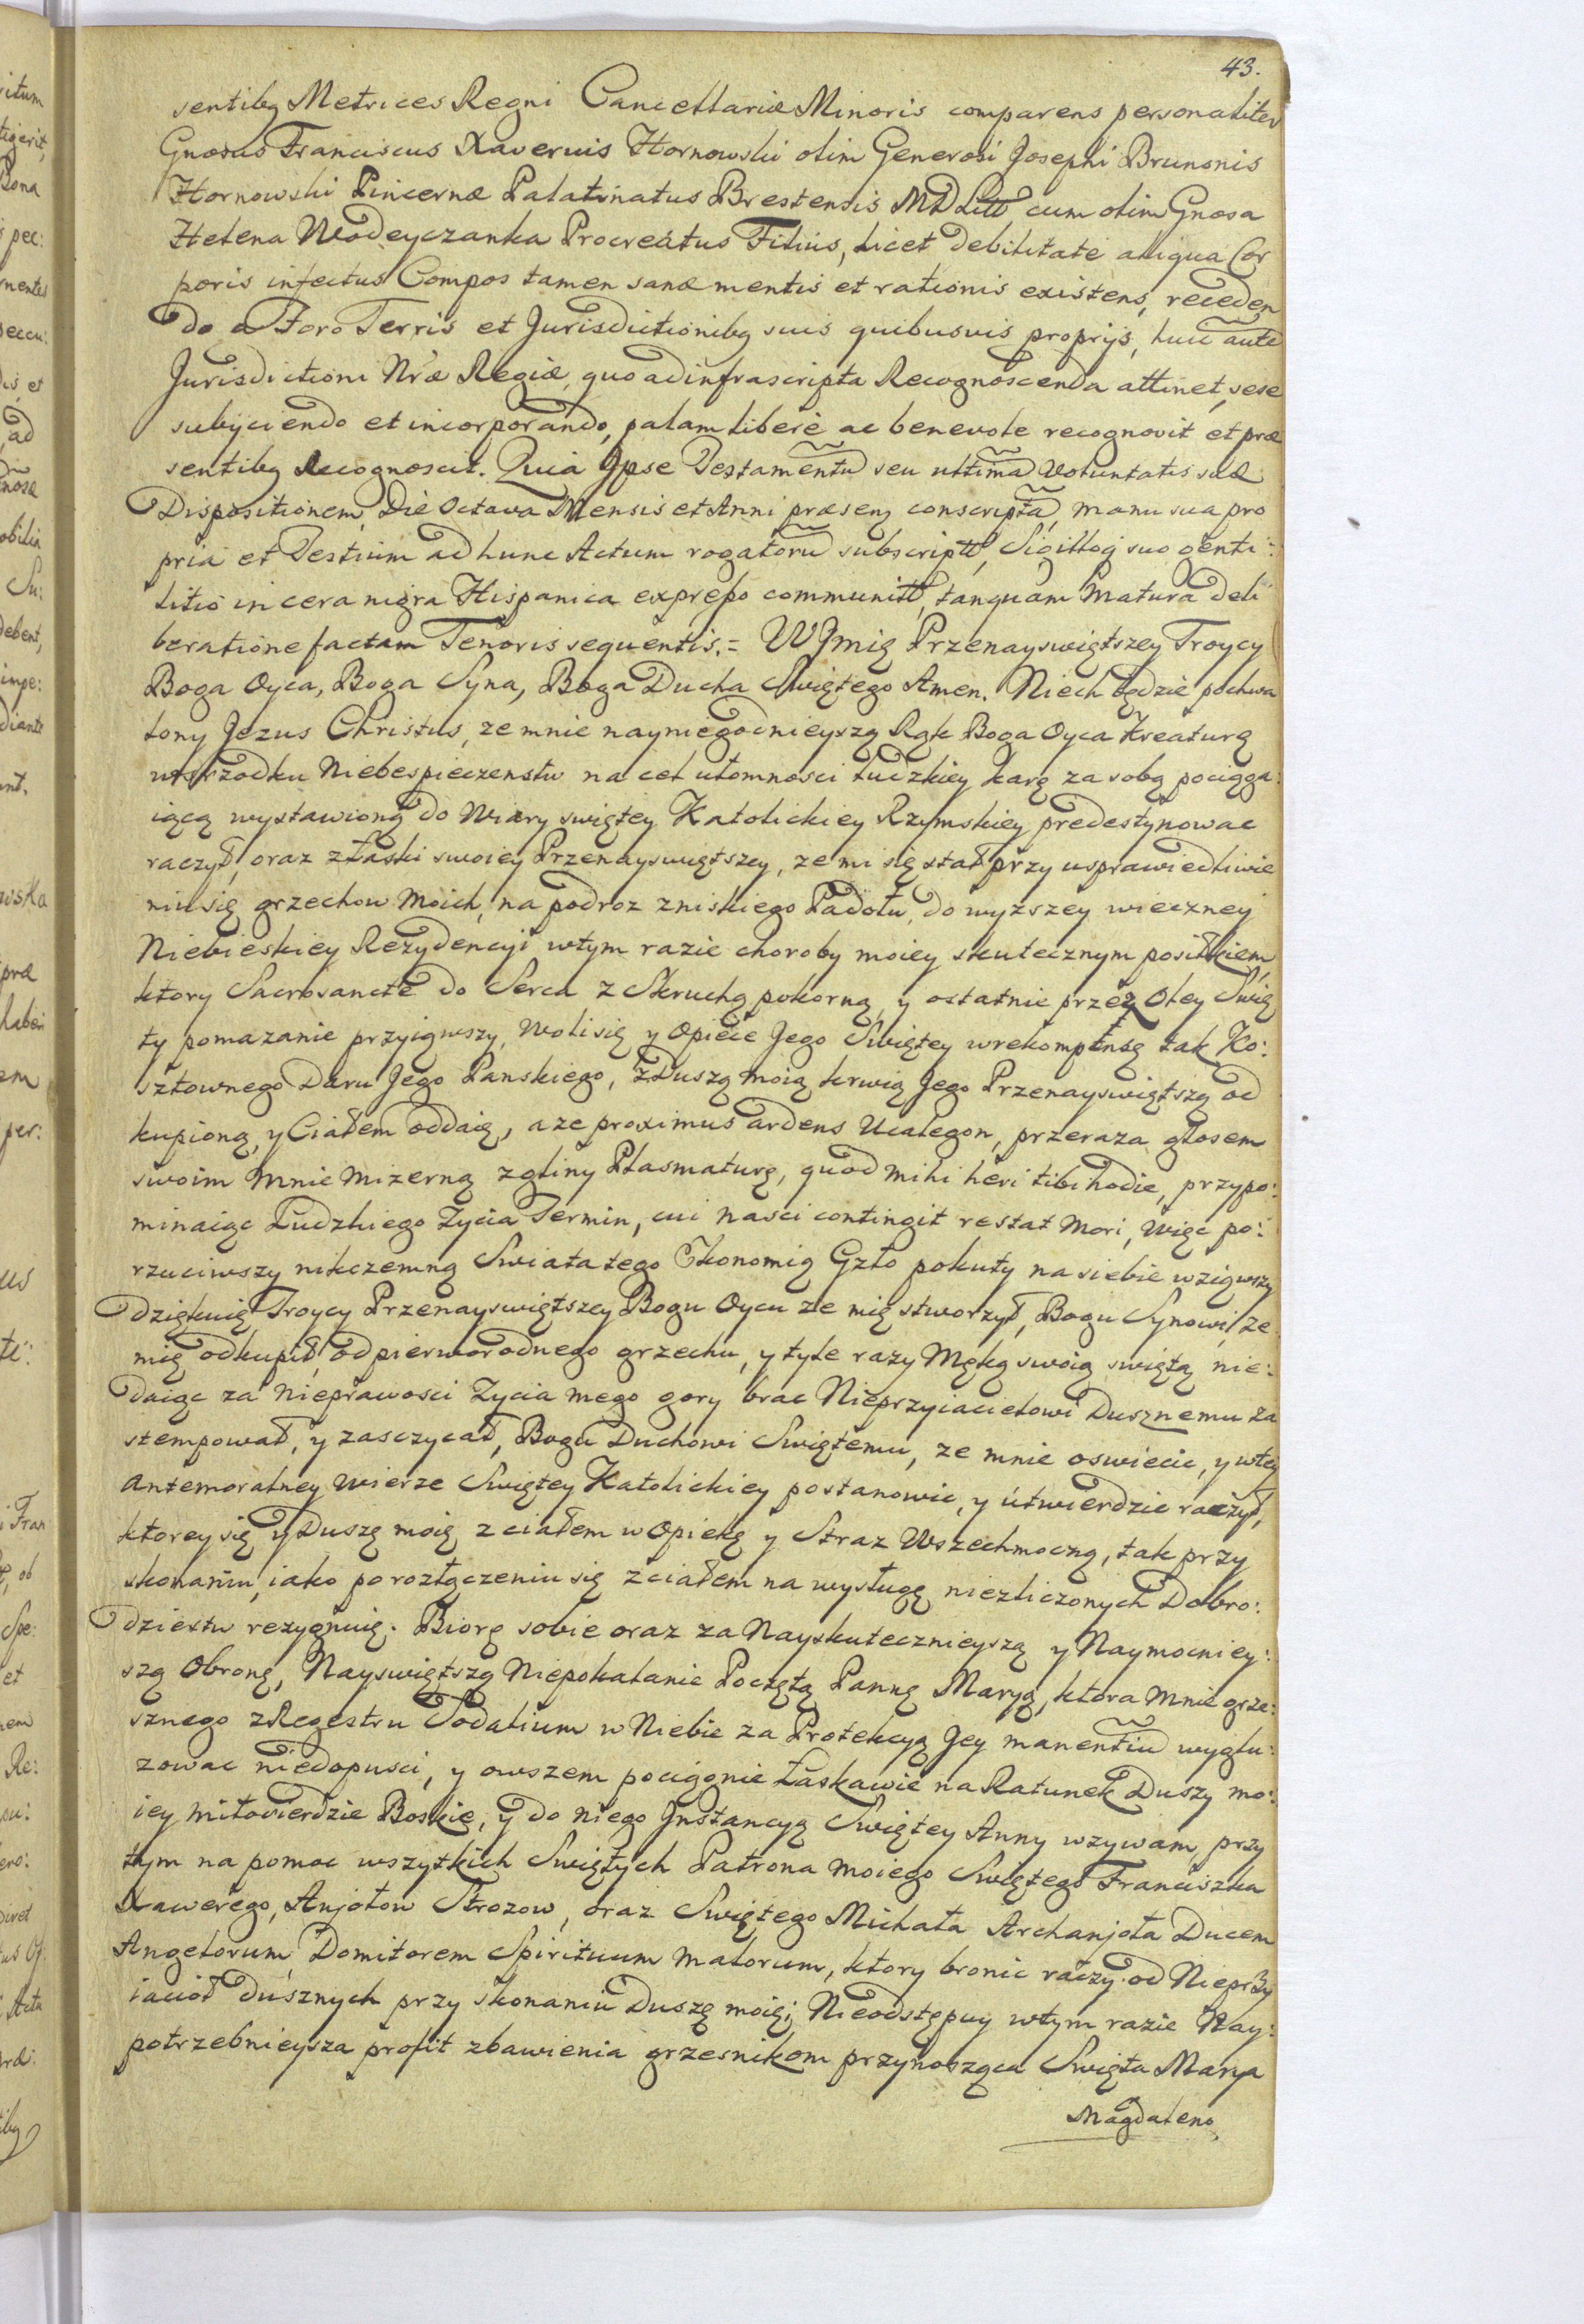 43.
sentibg Metrices Regni Cancellariæ Minoris comparens personaliter
Gnosus Franciscus Xaverius Hornowski olim Generosi Josephi Brunonis
Hornowski Pincernæ Palatinatus Brestensis MDLitt cum olim Gnosa
Helena Wodeyczanka Procreatus Filius, licet debilitate aliqua Cor
poris infectus Compos tamen sanæ mentis et rationis existens, receden
do a Foro Terris et Jurisdictionibg suis quibusvis proprijs, huic aute
Jurisdictioni Nræ Regiæ, quo ad infrascripta Recognoscenda attinet, sese
subijciendo et incorporando, palam libere ac benevole recognovit et præ
sentibg Recognoscit. Quia Jpse Testamentũ seu ultimã Voluntatis suæ
Dispositionem, Die Octava Mensis et Anni præsenz conscriptã, manu sua pro
pria et Testium ad hunc Actum rogatorũ subscriptt, Sigilloq suo genti:
litio in cera nigra Hispanica expresso communitt, tanquam Matura deli
beratione factam Tenoris sequentis. = W Jmię Przenayswiętszey Troycy
Boga Oyca, Boga Syna, Boga Ducha Swiętego Amen. Niech będzie pochwa
lony Jezus Christus, ze mnie nayniegodnieyszą Rąk Boga Oyca Kreaturę
wsrzodku Niebespieczenstw na cel ułomnosci ludzkiey karę za sobą pociąga:
iącą wystawioną do Wiary swiętey Katolickiey Rzymskiey predestynowac
raczył, oraz z Łaski swoiey Przenayswiętszey, ze mi się stał przy usprawiedliwie
niu się grzechow Moich, na podroz zniskiego Padołu, do wyzszey wieczney
Niebieskiey Rezydencyi wtym razie choroby moiey skutecznym posiłkiem
ktory Sacrosancte do Serca z Skruchą pokorną, y ostatnie przez Oley Swię
ty pomazanie przyiąwszy, Woli się y Opiece Jego Swiętey wrekompensę tak Ko:
sztownego Daru Jego Panskiego, z Duszą moią krwią Jego Przenayswiętszą od
kupioną, y Ciałem oddaię, a ze proximus ardens Ucalegon, przeraza głosem
swoim Mnie Mizerną z gliny Plasmaturę, quod mihi heri tibi hodie, przypo:
minaiąc Ludzkiego Zycia Termin, cui nasci contingit restat Mori, Więc po:
rzuciwszy nikczemną Swiata tego Ekonomią Gzło pokuty na siebie wziąwszy
dziękuię Troycy Przenayswiętszey Bogu Oycu ze mię stworzył, Bogu Synowi ze
mię odkupił od pierworodnego grzechu, y tyle razy Męką swoią swiętą, nie:
daiąc za Nieprawosci Zycia mego gory brac Nieprzyiacielowi Dusznemu za
stempował, y zasczycał, Bogu Duchowi Swiętemu, ze mnie oswiecic, y wtey
antemoralney Wierze Swiętey Katolickiey postanowic, y utwierdzic raczył,
ktorey się y Duszę moię z ciałem w Opiekę y Straz Wszechmocną, tak przy
skonaniu, iako po rozłączeniu się z ciałem na wysługę niezliczonych Dobro:
dzieystw rezygnuię. Biorę sobie oraz za Nayskutecznieyszą y Naymocniey:
szą Obronę, Nayswiętszą Niepokalanie Poczętą Pannę Maryą, ktora Mnie grze:
sznego z Regestru Sodalium w Niebie za Protekcyą Jey manentiũ wyglu:
zowac niedopusci, y owszem pociągnie Łaskawie na Ratunek Duszy mo:
iey Miłosierdzie Boskie, y do niego Jnstancyą Swiętey Anny wzywam, przy
tym na pomoc wszytkich Swiętych Patrona moiego Swiętego Franciszka
Xawerego, Anjołow Strozow, oraz Swiętego Michała Archanjoła Ducem
Angelorum, Domitorem Spirituum Malorum, ktory bronic raczy od Nieprzy
iacioł dusznych przy skonaniu Duszę moię; Nieodstępuy wtym razie Nay:
potrzebnieysza profit zbawienia grzesnikom przynosząca Swięta Marya
Magdaleno,